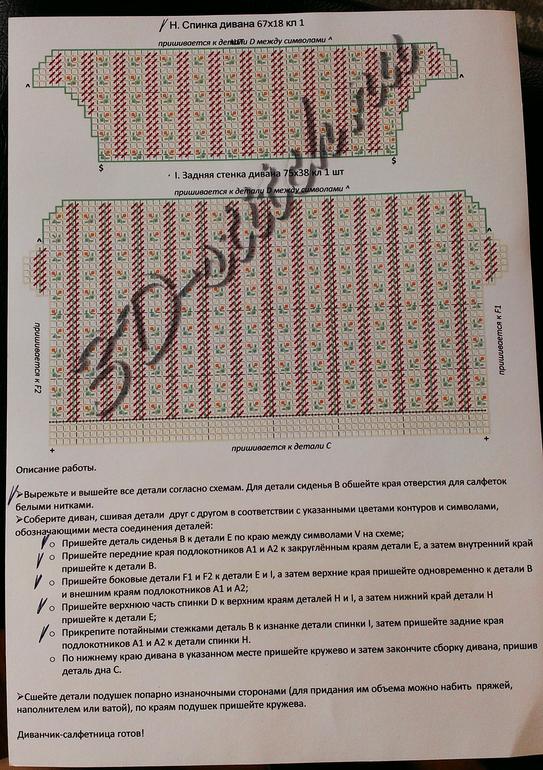 Н. Спинка дивана 67х18 кл 1
пришивается к детали D между символами ^
^
^
$
$
I. Задняя стенка дивана 75х38 кл 1 шт
пришивается к детали D между символами ^
^
^
пришивается к F2
пришивается к F1
3D-stitch.ru
+
+
пришивается к детали С
Описание работы.
➢Вырежьте и вышейте все детали согласно схемам. Для детали сиденья В обшейте края отверстия для салфеток
белыми нитками.
➢Соберите диван, сшивая детали друг с другом в соответствии с указанными цветами контуров и символами,
обозначающими места соединения деталей:
o Пришейте деталь сиденья В к детали Е по краю между символами V на схеме;
o Пришейте передние края подлокотников А1 и А2 к закруглённым краям детали Е, а затем внутренний край
пришейте к детали В.
o Пришейте боковые детали F1 и F2 к детали Е и I, а затем верхние края пришейте одновременно к детали В
и внешним краям подлокотников А1 и А2;
o Пришейте верхнюю часть спинки D к верхним краям деталей Н и I, а затем нижний край детали Н
пришейте к детали Е;
o Прикрепите потайными стежками деталь В к изнанке детали спинки I, затем пришейте задние края
подлокотников А1 и А2 к детали спинки Н.
o По нижнему краю дивана в указанном месте пришейте кружево и затем закончите сборку дивана, пришив
деталь дна С.
➢Сшейте детали подушек попарно изнаночными сторонами (для придания им объема можно набить пряжей,
наполнителем или ватой), по краям подушек пришейте кружева.
Диванчик-салфетница готов!